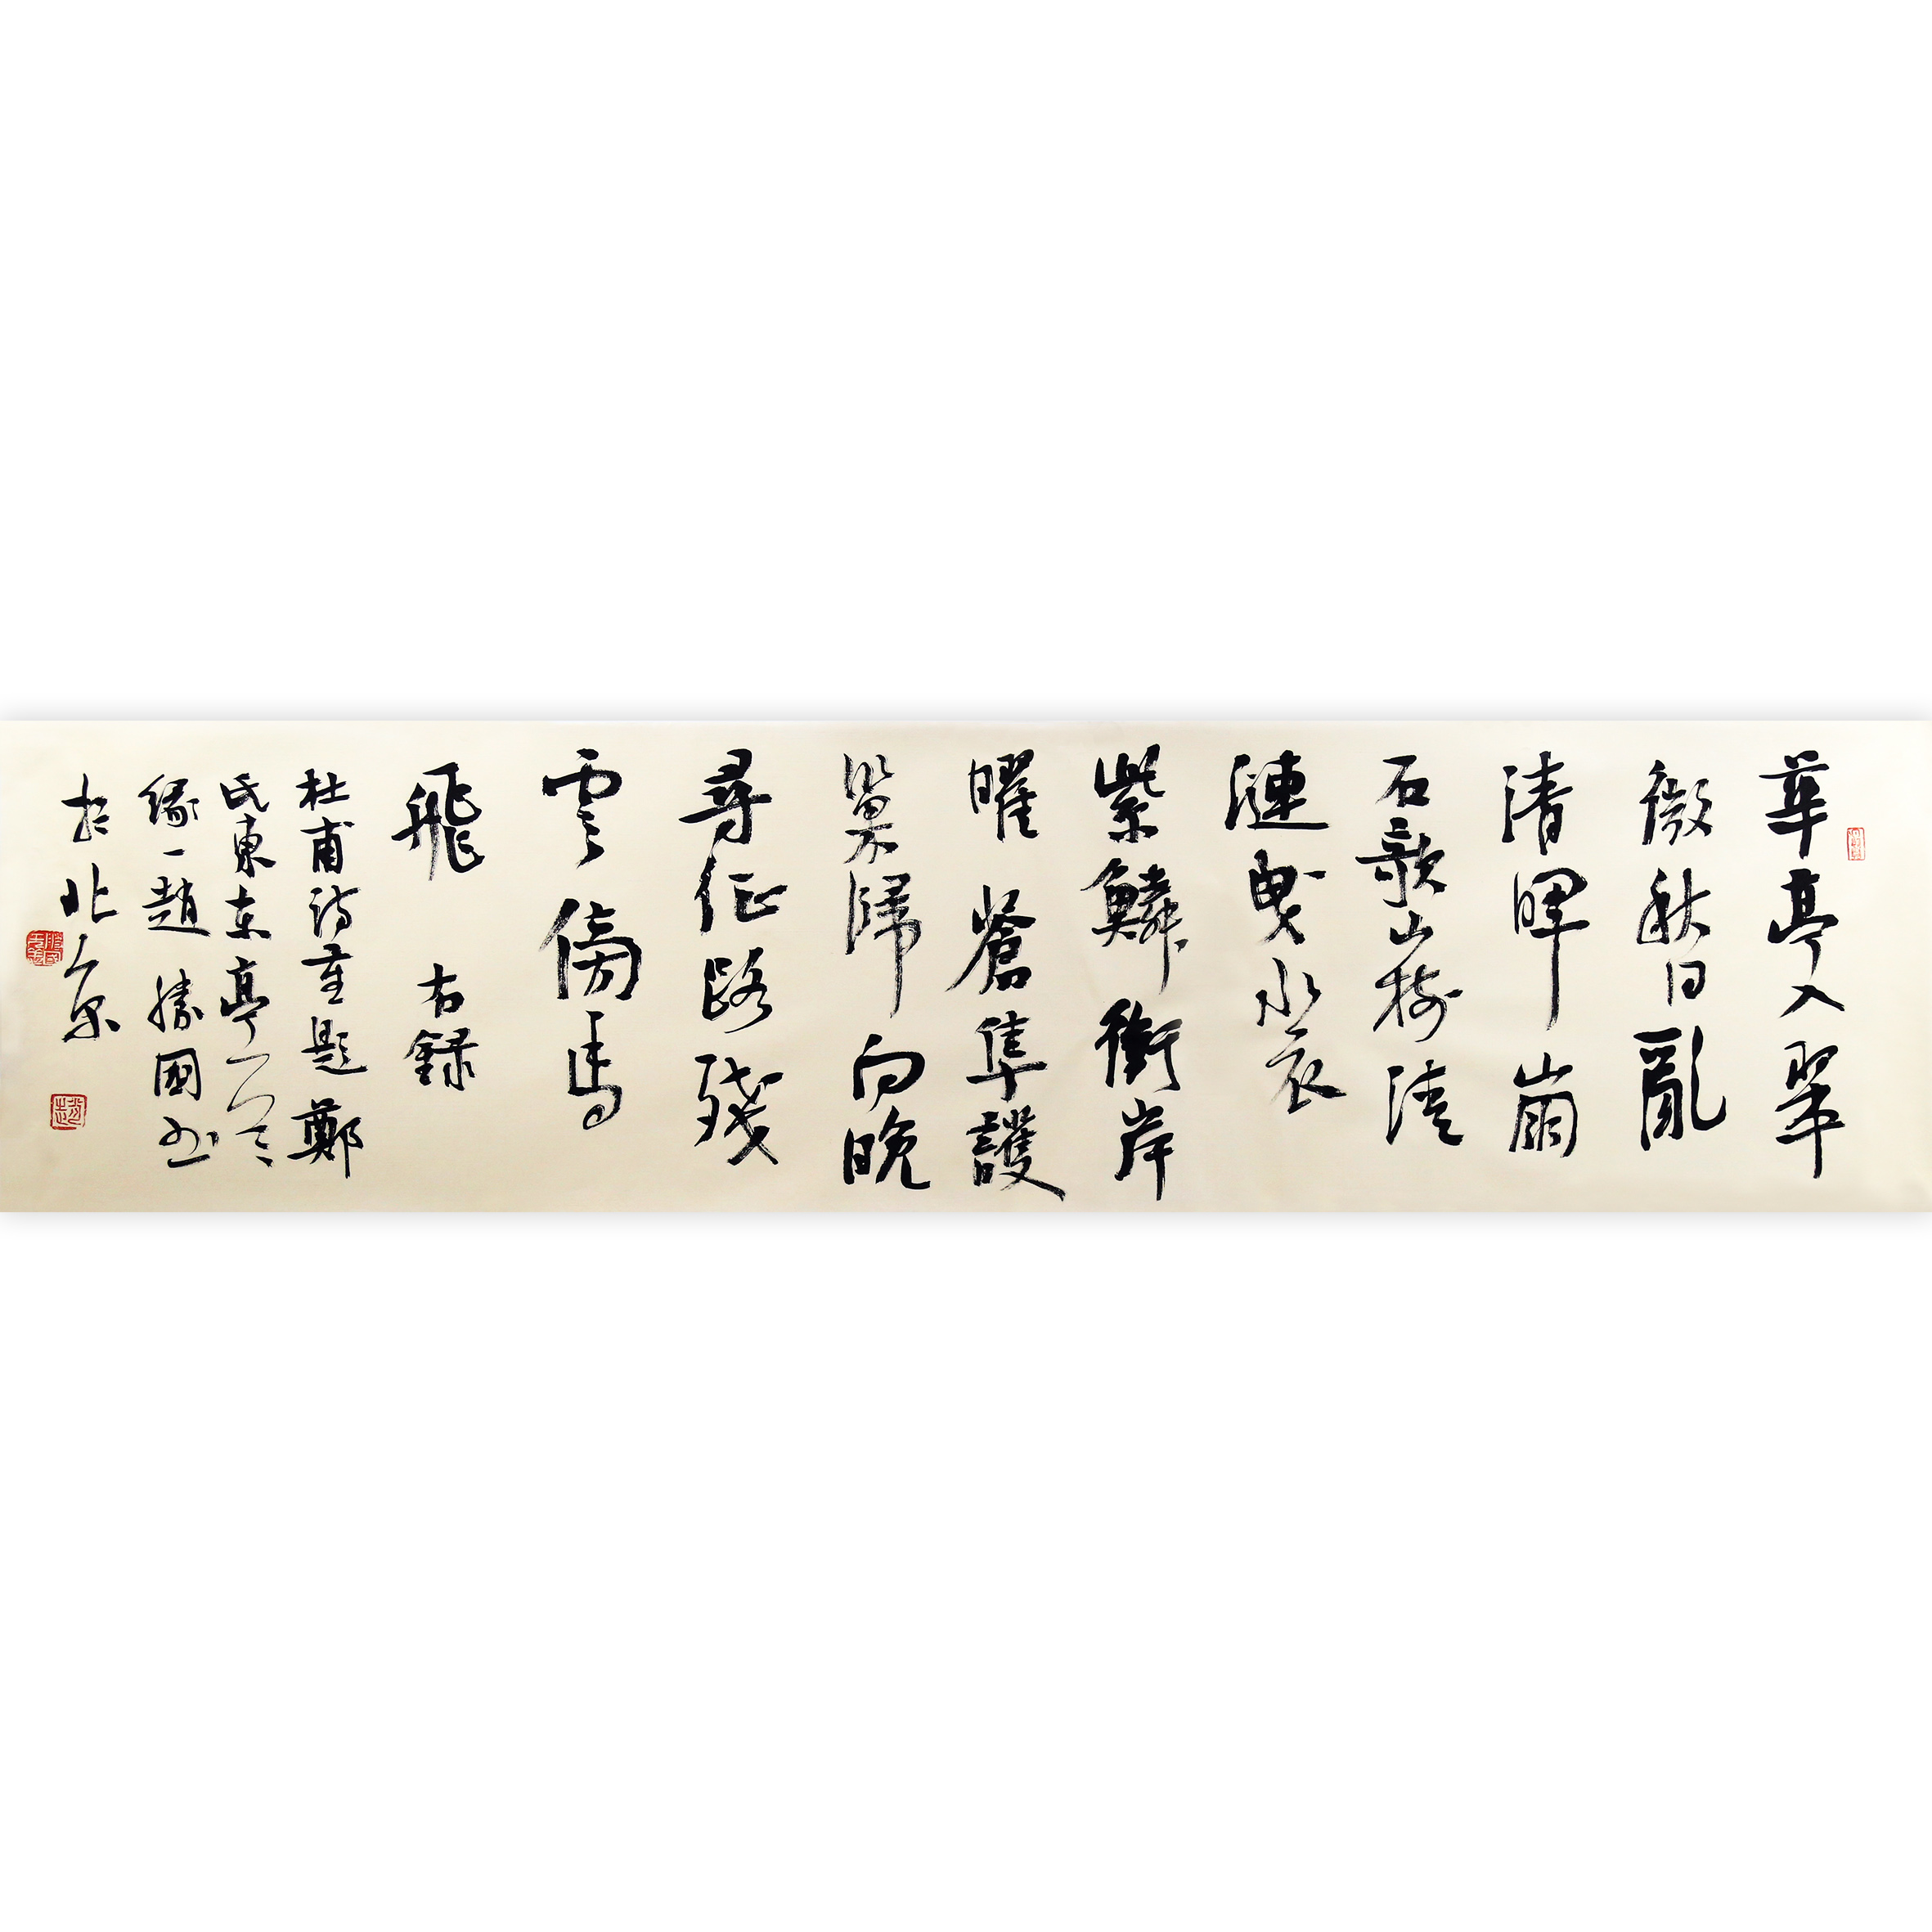 華亭入翠
微秋日亂
清暉崩
石欹山樹清
漣曳水衣
紫鱗衝岸
曜蒼隼護
巢歸向晚
尋征路殘
雲傍馬
飛 右錄
杜甫詩重題鄭
氏東亭
緣一趙勝國书
於北京